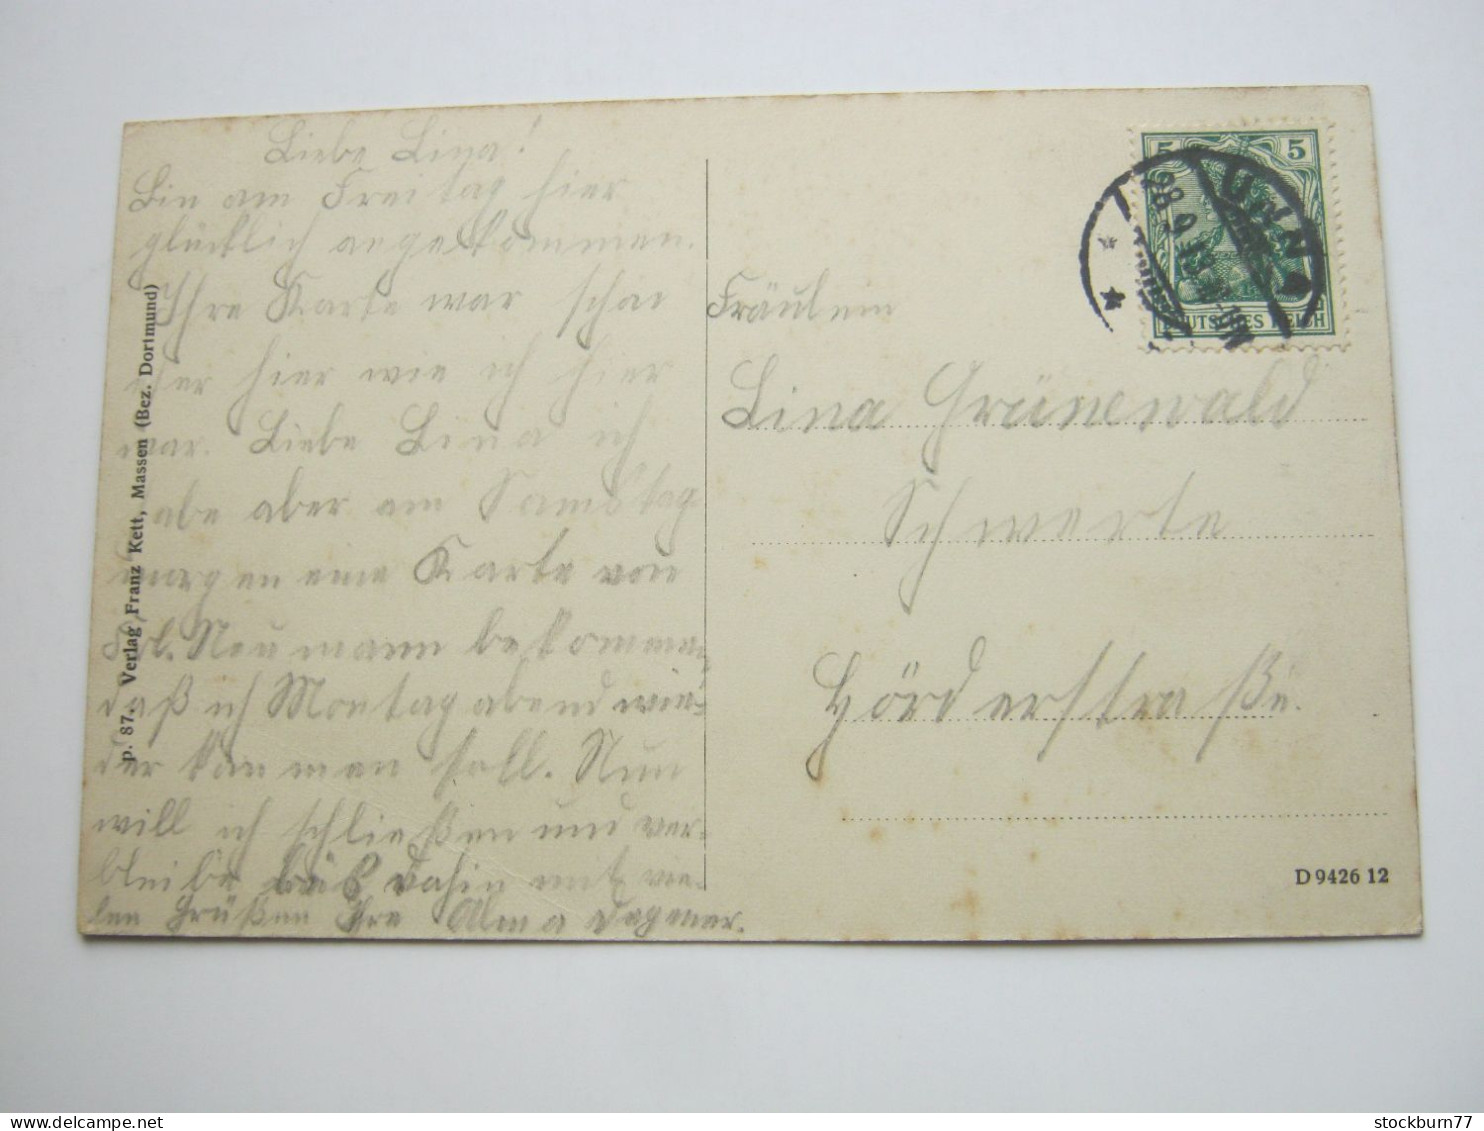 Liebe Lina!
Bin am Freitag hier
glücklich angekommen.
Ihre Karte war schon
eher hier wie ich hier
war. Liebe Lina ich
habe aber am Samstag
morgen eine Karte von
Frl. Neumann bekommen
daß ich Montag abend wie-
der kommen soll. Nun
will ich schließen und ver-
bleibe bis dahin mit vie-
len Grüßen Ihre Alma Dagmar.
p. 87. Verlag Franz Kett, Massen (Bez. Dortmund)
5 5
DEUTSCHES REICH
UNNA
28.9.13
Fräulein
Lina Grünewald
Schwerte
Hörderstraße.
D 9426 12
stockburn77